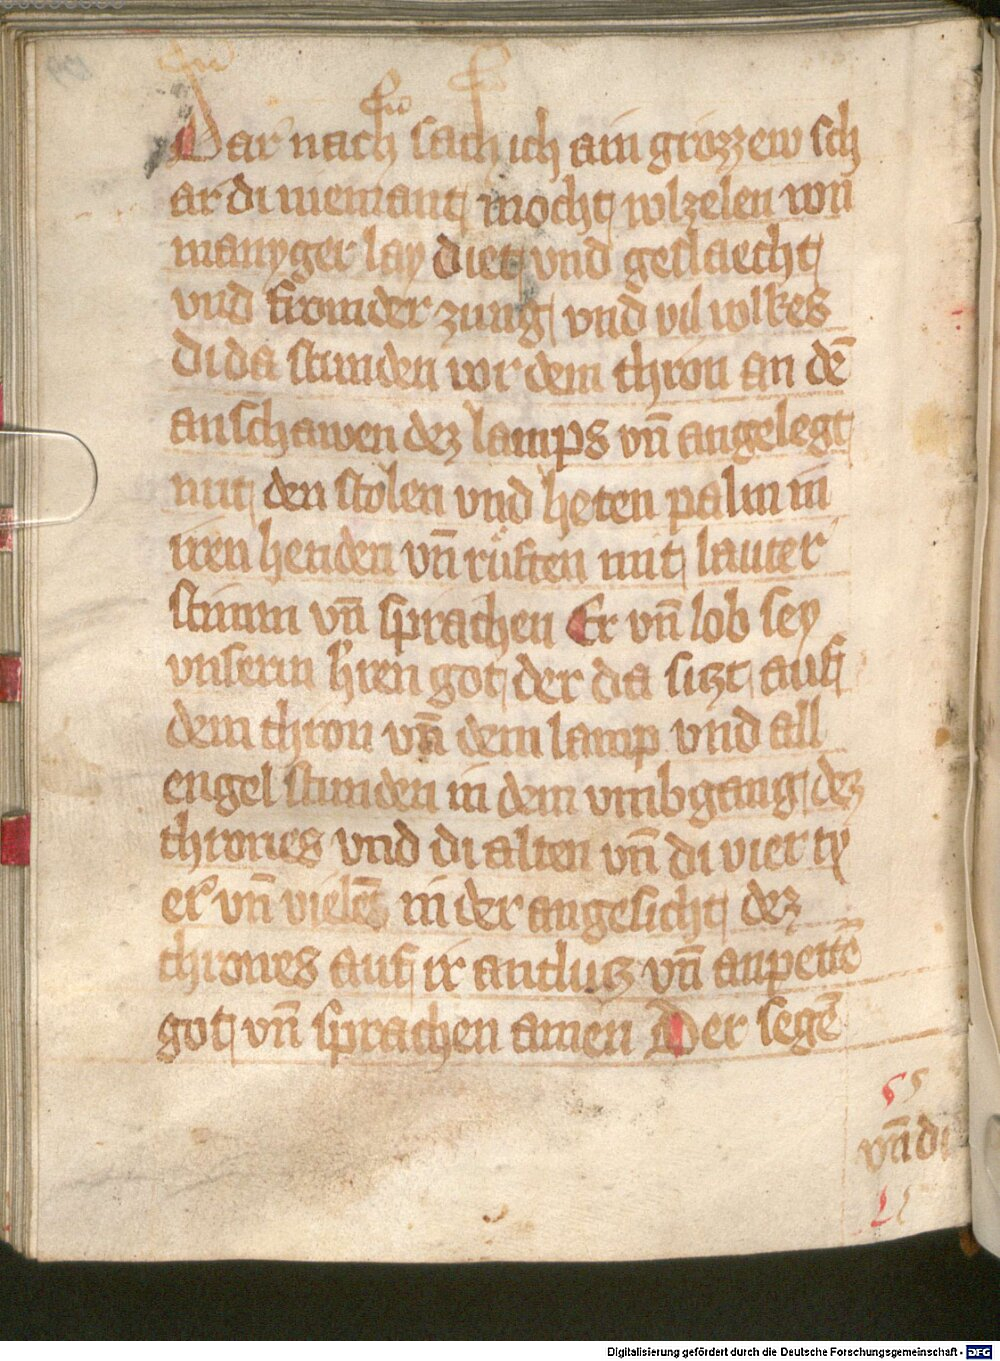 Dar nach sach ich ain grozzew sch
ar di niemant mocht wlzelen von
manyger lay diet vnd geslaecht
vnd fromder zung vnd vil wlkes
Di da stunden vor dem thron an dē
anschawen dez lamps vn̄ angelegt
mit den stolen vnd heten palm in
iren henden vn̄ růften mit lauter
stimm vn̄ sprachen Er vn̄ lob sey
vnserm h̾ren got der da sitzt auf
dem thron vn̄ dem lamp vnd all
engel stunden in dem vmbgang dez
thrones vnd di alten vn̄ di vier ty
er vn̄ vielē in der angesicht dez
thrones auf ir antlutz vn̄ anpettē
got vn̄ sprachen amen Der segē
vn̄ di
Digitalisierung gefördert durch die Deutsche Forschungsgemeinschaft - DFG